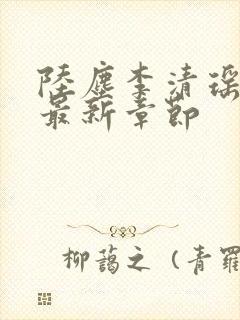 陸塵李清瑶
最新章節
柳藹之（青羅